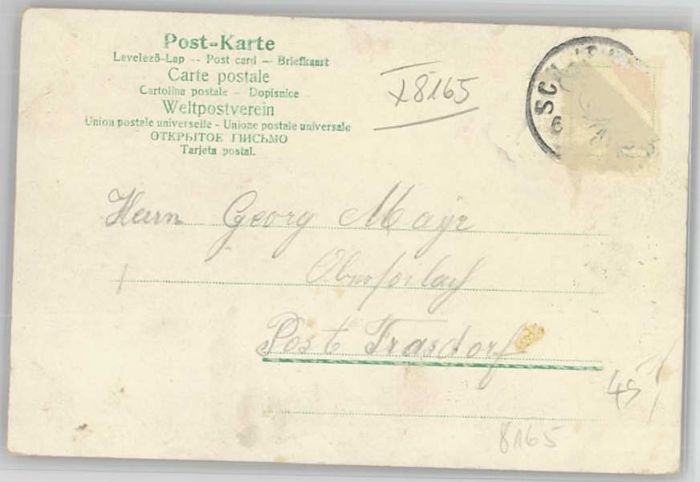 Post-Karte
Levelező-Lap -- Post card -- Briefkaart
Carte postale
Cartolina postale - Dopisnice
Weltpostverein
Union postale universelle - Unione postale universale
ОТКРЫТОЕ ПИСЬМО
Tarjeta postal.
X8165
SCH
6
Herrn Georg Mayr
Post Frasdorf
45
8165